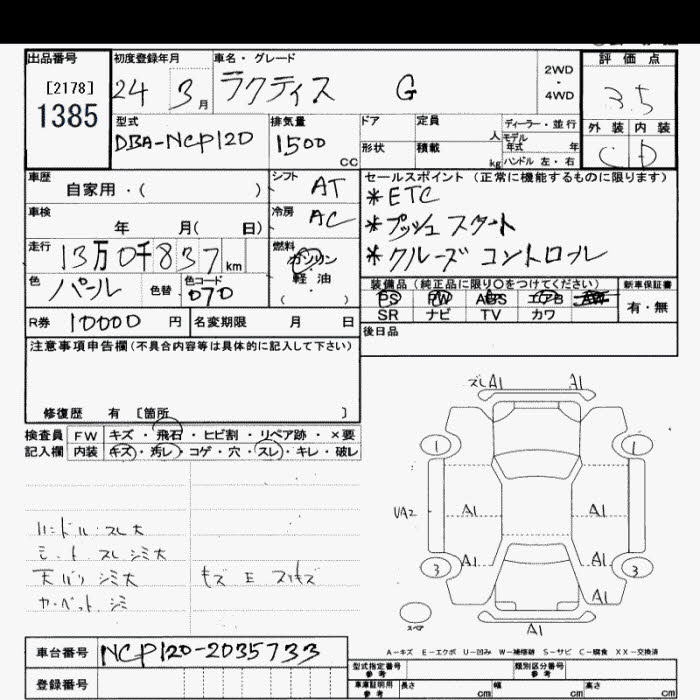 出品番号 初度登録年月 車名・グレード 評価点
[2178] 24 3月 ラクティス G 2WD・4WD 3.5
1385 型式 排気量 ドア 定員 人 ディーラー・並行 外装 内装
DBA-NCP120 1500 cc 形状 積載 kg モデル年式 年 ハンドル 左・右 C D
車歴 自家用・( ) シフト AT セールスポイント (正常に機能するものに限ります)
車検 年 月( 日) 冷房 AC *ETC
*プッシュスタート
走行 13万0千837km 燃料 ガソリン 軽油 ( ) *クルーズコントロール
色 パール 色替 色コード 070 装備品 (純正品に限り○をつけてください) 新車保証書
PS PW ABS エアB 有・無
R券 10000円 名変期限 月 日 SR ナビ TV カワ
注意事項申告欄(不具合内容等は具体的に記入して下さい) 後日品
修復歴 有 〔箇所 〕
検査員 FW キズ・飛石・ヒビ割・リペア跡・×要
記入欄 内装 キズ・汚レ・コゲ・穴・スレ・キレ・破レ
ズレ A1 A1
1 1
UA2 A1 A1
A1 A1
3 3
A1
スペア A1
ハンドル スレ大
シート スレ シミ大
天バリ シミ大 キズ E スリキズ
カーペット シミ
A-キズ E-エクボ U-凹み W-補修跡 S-サビ C-腐食 XX-交換済
車台番号 NCP120-2035733 型式指定番号 参考 類別区分番号 参考
登録番号 車庫証明用 参考 長さ cm 幅 cm 高さ cm